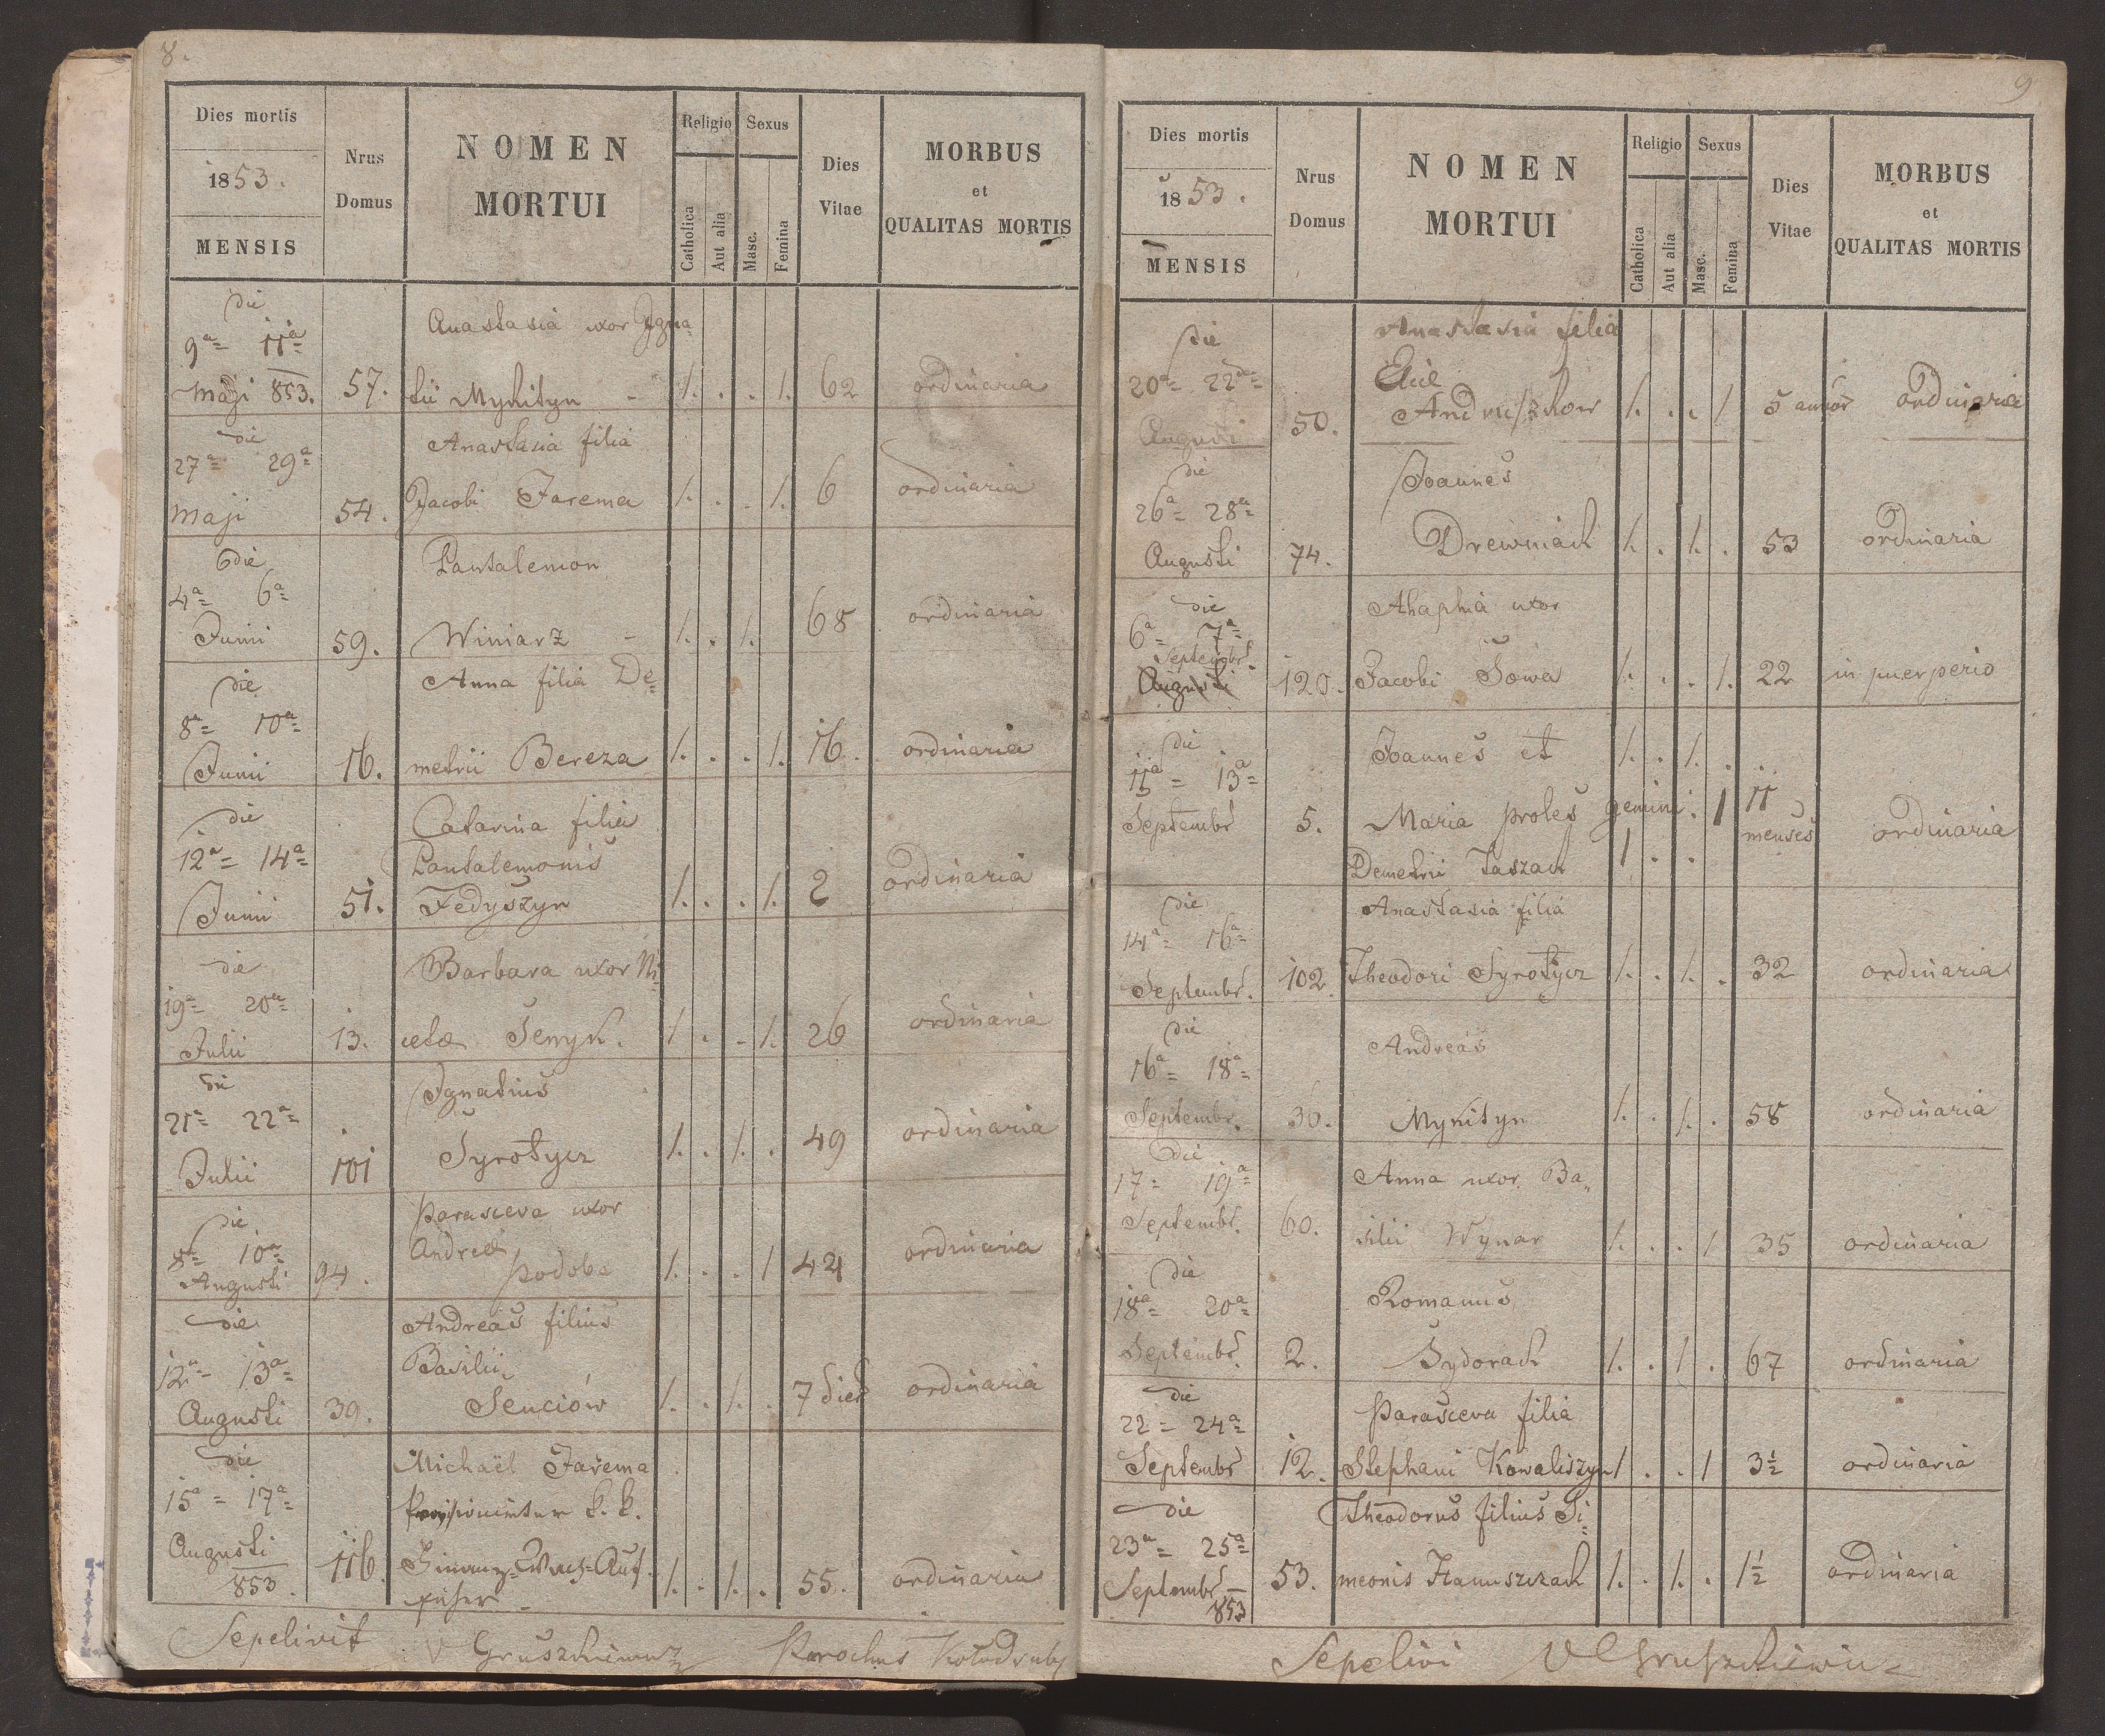 8.
Dies mortis
1853.
MENSIS
Nrus
Domus
NOMEN
MORTUI
Religio
Catholica
Aut alia
Sexus
Masc.
Femina
Dies
Vitae
MORBUS
et
QUALITAS MORTIS
die
9ª= 11ª=
Maji 853.
57.
Anastasia uxor Igna=
tii Mykityn
1. . . 1.
62
ordinaria
die
27ª= 29ª=
Maji
54.
Anastasia filia
Jacobi Jarema
1. . . 1.
6
ordinaria
die
4ª= 6ª=
Junii
59.
Pantalemon
Winiarz
1. . 1.
68
ordinaria
die
8ª= 10ª=
Junii
16.
Anna filia De=
metrii Bereza
1. . . 1.
16.
ordinaria
die
12ª= 14ª=
Junii
51.
Catarina filia
Pantalemonis
Fedyszyn
1. . . 1.
2
ordinaria
die
19ª= 20ª=
Julii
13.
Barbara uxor Ni=
cetæ Senyk.
1 . . 1.
26
ordinaria
die
21ª= 22ª=
Julii
101
Ignatius
Syrotycz
1. . 1. .
49
ordinaria
die
8ª= 10ª=
Augusti
94.
Parasceva uxor
Andreæ
Podoba
1. . . 1
42
ordinaria
die
12ª= 13ª=
Augusti
39.
Andreas filius
Basilii
Senciów
1. . 1. .
7 dies
ordinaria
die
15ª= 17ª=
Augusti
853.
116.
Michaël Jarema
k. k.
Finanz=Wach=Auf
seher
1. . 1. .
55.
ordinaria
Sepelivit V Gruszkiewicz Parochus Kołodruby
9
Dies mortis
1853.
MENSIS
Nrus
Domus
NOMEN
MORTUI
Religio
Catholica
Aut alia
Sexus
Masc.
Femina
Dies
Vitae
MORBUS
et
QUALITAS MORTIS
die
20ª= 22ª=
Augusti
50.
Anastasia filia
Eliæ
Andruszkow
1. . . 1
5 annor
ordinaria
die
26ª= 28ª=
Augusti
74.
Joannes
Drewniach
1. . 1. .
53
ordinaria
die
6ª= 7ª=
Septembr.
Augusti
120.
Ahaphia uxor
Jacobi Sowa
1. . . 1.
22
in puerperio
die
11ª= 13ª=
Septembr
5.
Joannes et
Maria proles gemini
Demetrii Taszach
1. . 1. .
1 . . 1
11
menses
ordinaria
die
14ª= 16ª=
Septembr.
102.
Anastasia filia
Theodori Syrotycz
1. . 1. .
32
ordinaria
die
16ª= 18ª=
Septembr.
30.
Andreas
Mykityn
1. . 1. .
58
ordinaria
die
17= 19ª=
Septembr.
60.
Anna uxor Ba=
silii Wynar
1. . . 1
35
ordinaria
die
18ª= 20ª=
Septembr.
2.
Romanus
Sydorach
1. . 1 .
67
ordinaria
die
22= 24ª=
Septembr
12.
Parasceva filia
Stephani Kowaliszyn
1 . . 1
3½
ordinaria
die
23ª= 25ª=
Septembr
853
53.
Theodorus filius Si=
meonis Hanuszczach
1. . 1. .
1½
ordinaria
Sepelivi V Gruszkiewicz